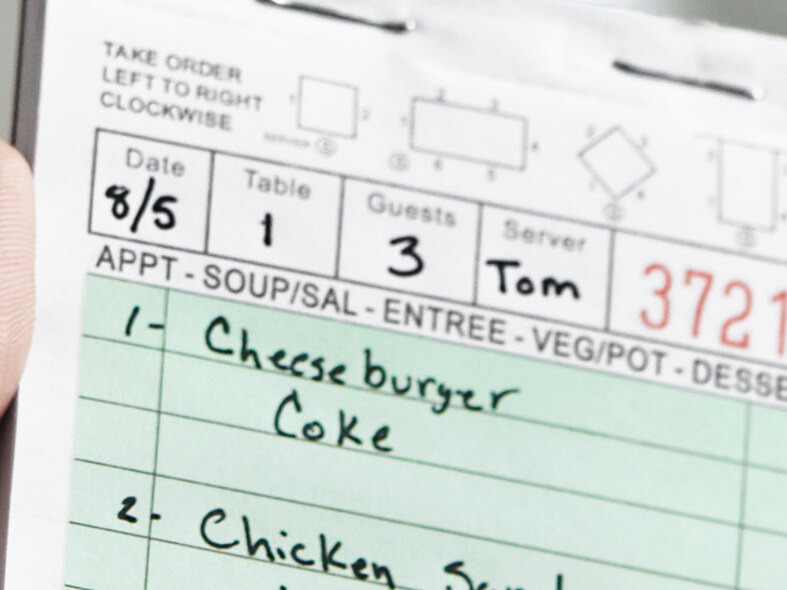 TAKE ORDER
LEFT TO RIGHT
CLOCKWISE
Date Table Guests Server
8/5 1 3 Tom 3721
APPT - SOUP/SAL - ENTREE - VEG/POT - DESSE
1- Cheeseburger
Coke
2- Chicken